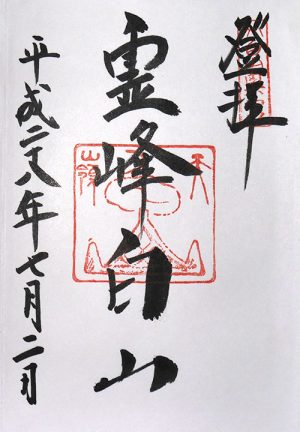 登拝
霊峰白山
平成二十八年七月二日